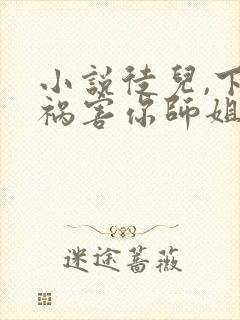 小説徒兒,下
禍害你師姐
迷途蔷薇